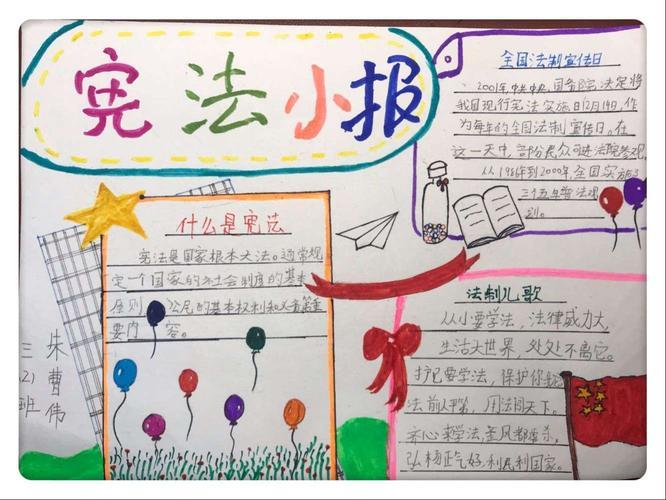 宪法小报
全国法制宣传日
2001年,中共中央、国务院决定将
我国现行宪法实施日12月4日,作
为每年的全国法制宣传日。在
这一天中,部份群众可进法院参观,
从1986年到2000年全国实施3
三个五年普法规
划。
什么是宪法
宪法是国家根本大法。通常规
定一个国家的社会制度的基本
原则 公民的基本权利和义务等重
要内 容。
法制儿歌
从小要学法,法律威力大
生活大世界,处处不离它。
护己要学法,保护你我
法前人平等,用法闯天下。
齐心来学法,
弘杨正气好,利民利国家。
三(2)班
朱曹伟